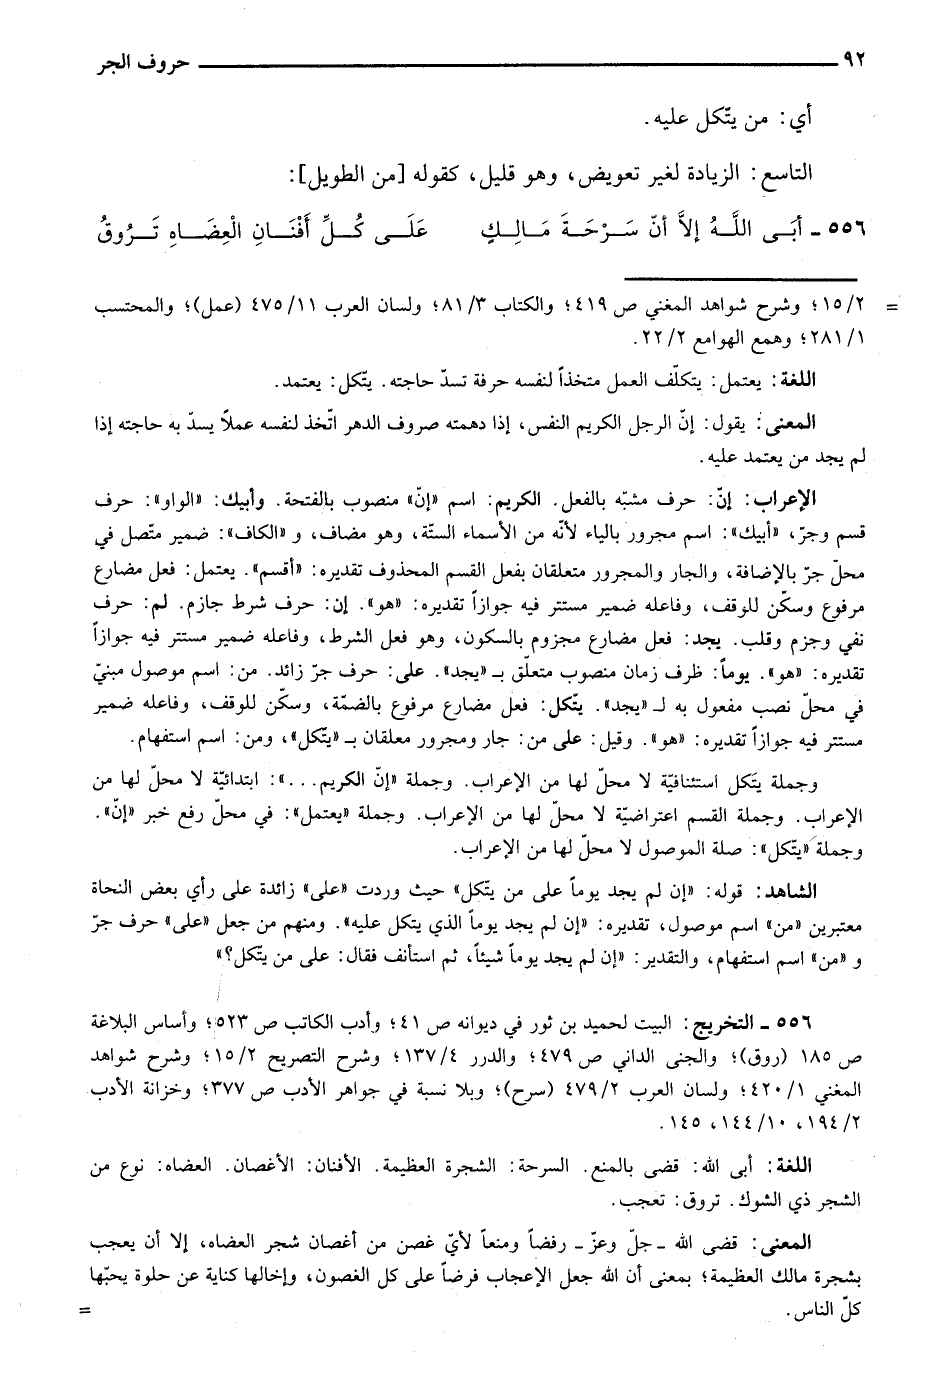 ٩٢ حروف الجر
أي: من يتّكل عليه.
التاسع: الزيادة لغير تعويض، وهو قليل، كقوله [من الطويل]:
٥٥٦ ـ أَبَـى اللَّـهُ إلاَّ أنّ سَـرْحَـةَ مَـالِـكٍ عَلَـى كُـلِّ أَفْنَـانِ الْعِضَـاهِ تَـرُوقُ
= ١٥/٢؛ وشرح شواهد المغني ص ٤١٩؛ والكتاب ٨١/٣؛ ولسان العرب ٤٧٥/١١ (عمل)؛ والمحتسب
٢٨١/١؛ وهمع الهوامع ٢٢/٢.
اللغة: يعتمل: يتكلّف العمل متخذاً لنفسه حرفة تسدّ حاجته. يتّكل: يعتمد.
المعنى: يقول: إنّ الرجل الكريم النفس، إذا دهمته صروف الدهر اتّخذ لنفسه عملاً يسدّ به حاجته إذا
لم يجد من يعتمد عليه.
الإعراب: إنّ: حرف مشبّه بالفعل. الكريم: اسم «إنّ» منصوب بالفتحة. وأبيك: «الواو»: حرف
قسم وجرّ، «أبيك»: اسم مجرور بالياء لأنّه من الأسماء الستّة، وهو مضاف، و «الكاف»: ضمير متّصل في
محلّ جرّ بالإضافة، والجار والمجرور متعلقان بفعل القسم المحذوف تقديره: «أقسم». يعتمل: فعل مضارع
مرفوع وسكّن للوقف، وفاعله ضمير مستتر فيه جوازاً تقديره: «هو». إن: حرف شرط جازم. لم: حرف
نفي وجزم وقلب. يجد: فعل مضارع مجزوم بالسكون، وهو فعل الشرط، وفاعله ضمير مستتر فيه جوازاً
تقديره: «هو». يوماً: ظرف زمان منصوب متعلّق بـ «يجد». على: حرف جرّ زائد. من: اسم موصول مبنيّ
في محلّ نصب مفعول به لـ «يجد». يتّكل: فعل مضارع مرفوع بالضمّة، وسكّن للوقف، وفاعله ضمير
مستتر فيه جوازاً تقديره: «هو». وقيل: على من: جار ومجرور معلقان بـ «يتّكل»، ومن: اسم استفهام.
وجملة يتّكل استئنافيّة لا محلّ لها من الإعراب. وجملة «إنّ الكريم...»: ابتدائيّة لا محلّ لها من
الإعراب. وجملة القسم اعتراضيّة لا محلّ لها من الإعراب. وجملة «يعتمل»: في محلّ رفع خبر «إنّ».
وجملة «يتّكل»: صلة الموصول لا محلّ لها من الإعراب.
الشاهد: قوله: «إن لم يجد يوماً على من يتّكل» حيث وردت «على» زائدة على رأي بعض النحاة
معتبرين «من» اسم موصول، تقديره: «إن لم يجد يوماً الذي يتكل عليه». ومنهم من جعل «على» حرف جرّ
و «من» اسم استفهام، والتقدير: «إن لم يجد يوماً شيئاً، ثم استأنف فقال: على من يتّكل؟»
٥٥٦ ـ التخريج: البيت لحميد بن ثور في ديوانه ص ٤١؛ وأدب الكاتب ص ٥٢٣؛ وأساس البلاغة
ص ١٨٥ (روق)؛ والجنى الداني ص ٤٧٩؛ والدرر ١٣٧/٤؛ وشرح التصريح ١٥/٢؛ وشرح شواهد
المغني ٤٢٠/١؛ ولسان العرب ٤٧٩/٢ (سرح)؛ وبلا نسبة في جواهر الأدب ص ٣٧٧؛ وخزانة الأدب
١٩٤/٢، ١٤٤/١٠، ١٤٥.
اللغة: أبى الله: قضى بالمنع. السرحة: الشجرة العظيمة. الأفنان: الأغصان. العضاه: نوع من
الشجر ذي الشوك. تروق: تعجب.
المعنى: قضى الله ـ جلّ وعزّ ـ رفضاً ومنعاً لأيّ غصن من أغصان شجر العضاه، إلا أن يعجب
بشجرة مالك العظيمة؛ بمعنى أن الله جعل الإعجاب فرضاً على كل الغصون، وإخالها كناية عن حلوة يحبّها
كلّ الناس. =